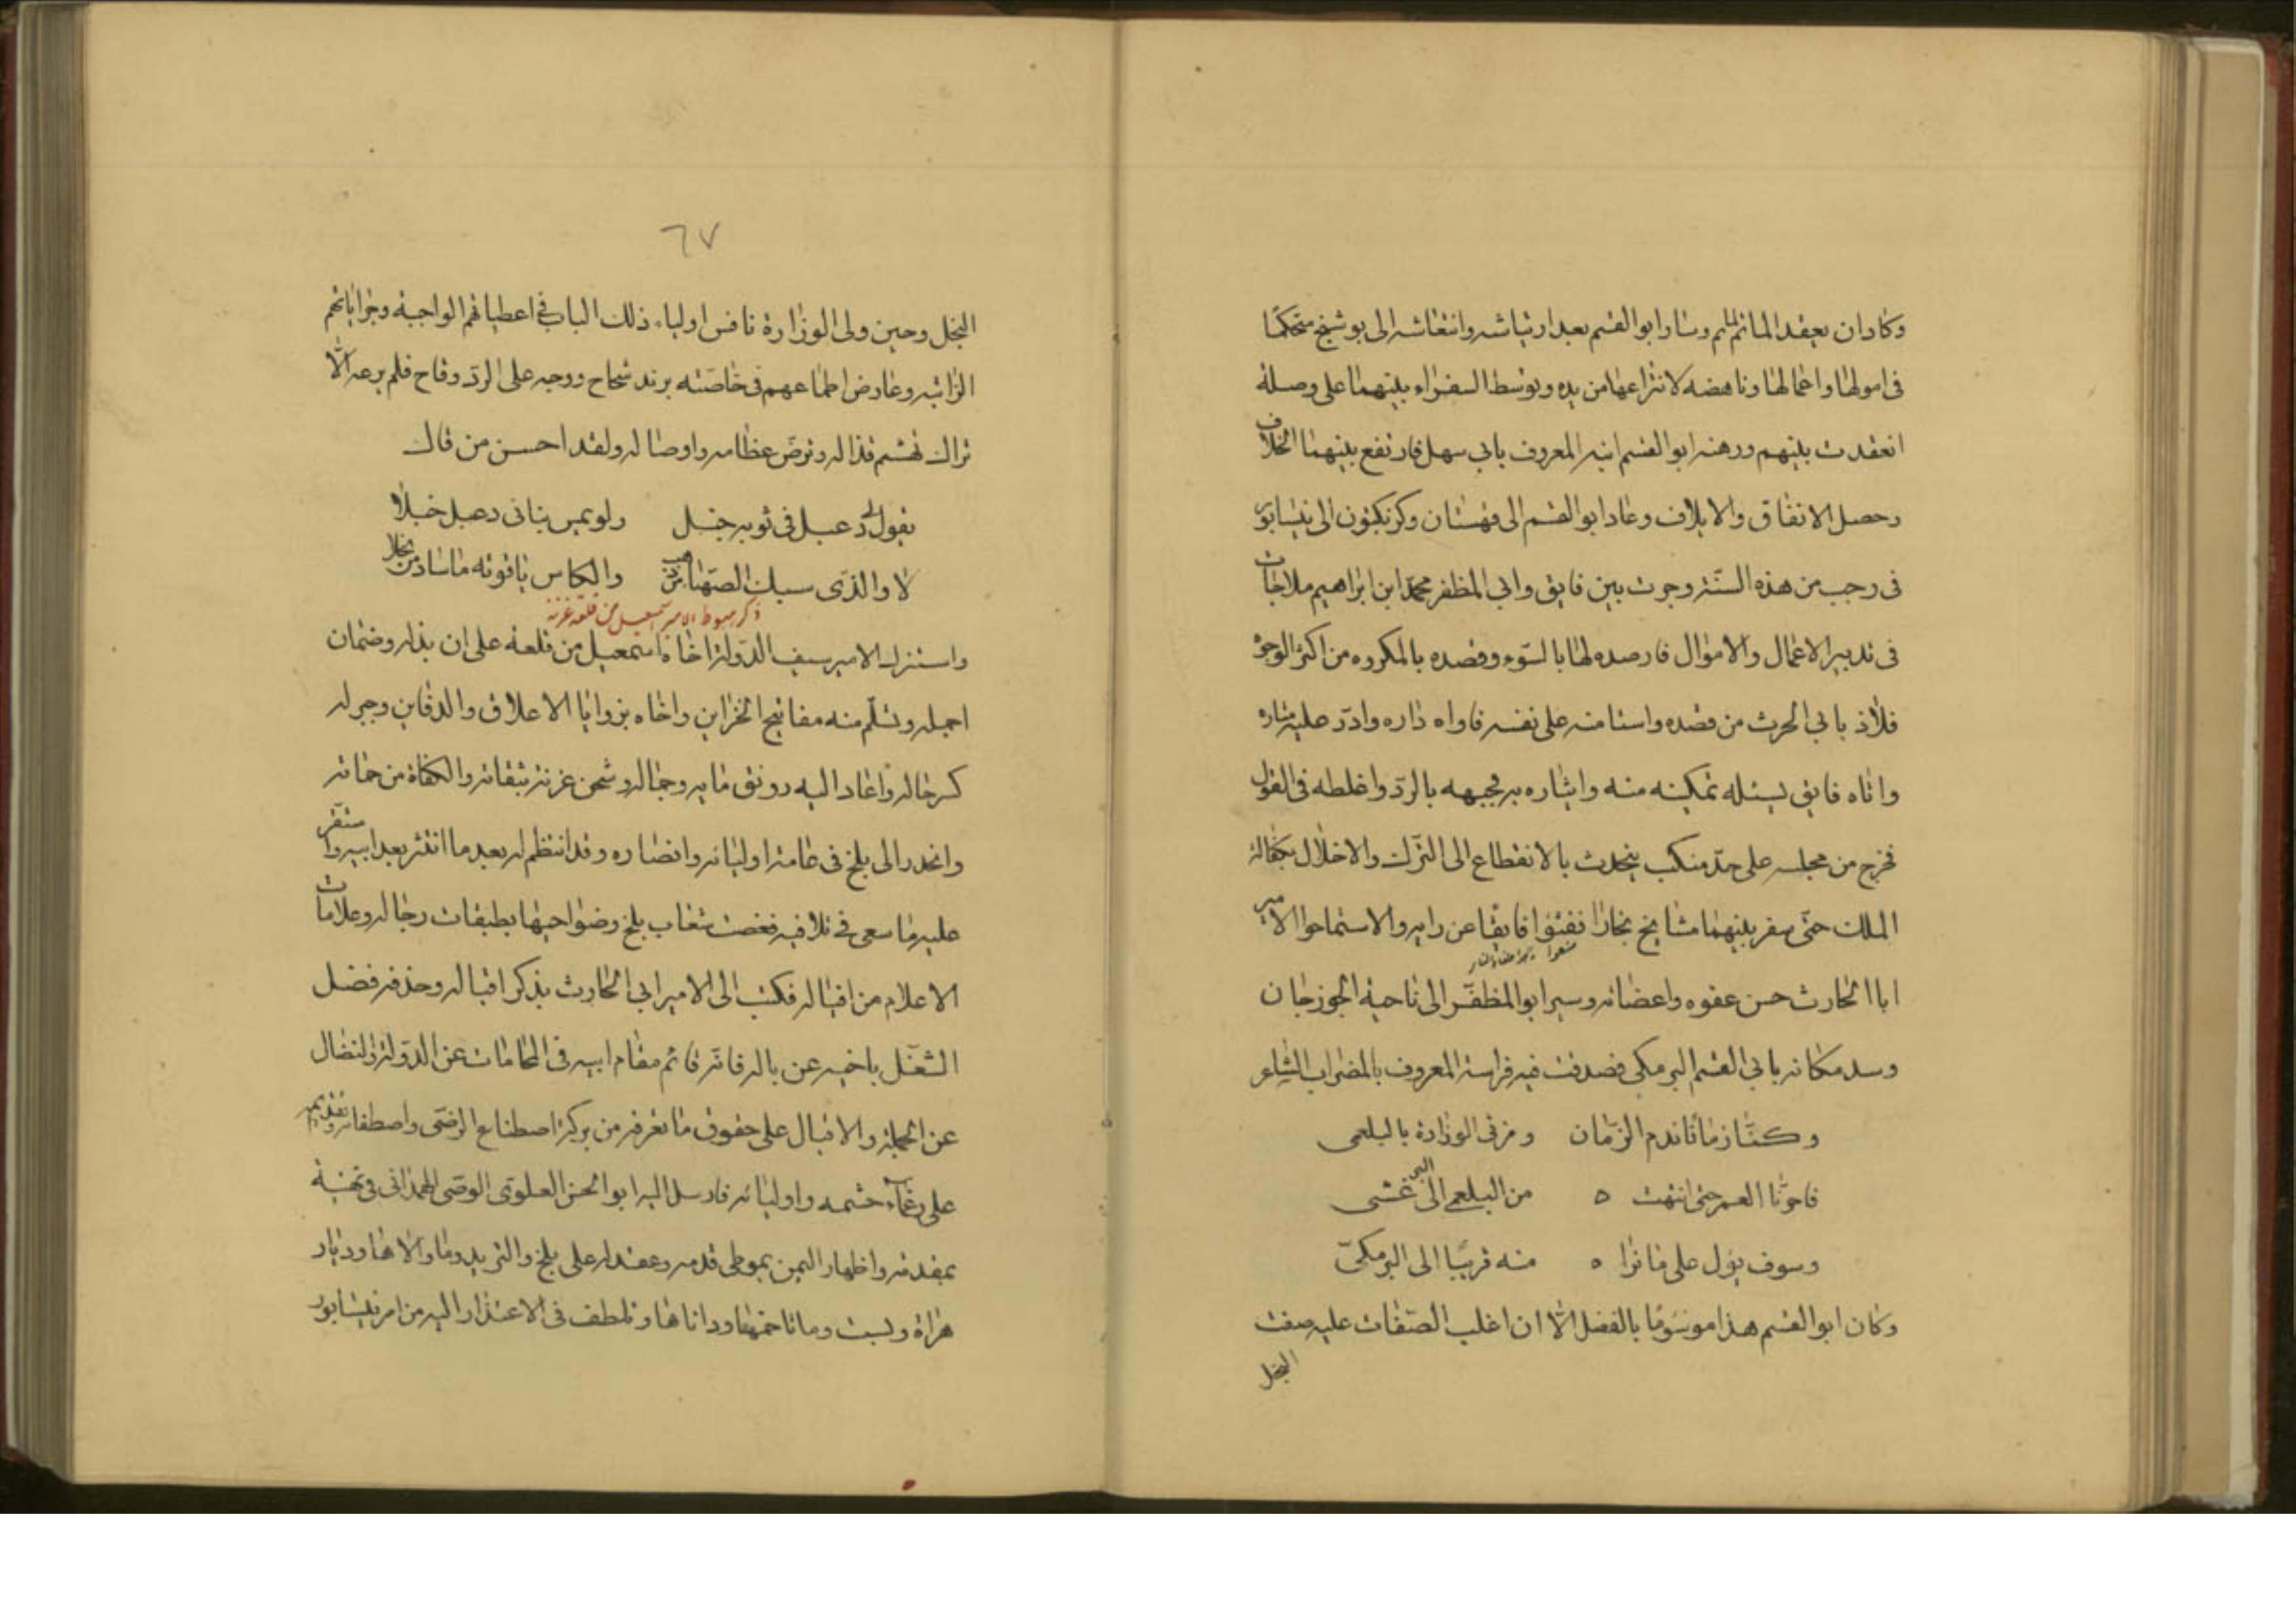 وكادان يعقد المآتم للمآتم وسار ابو القسم بعد ارتياشه وانتعاشه الى بوشنج متحكمًا
فى اموالها واعمالها وناهضه لانتزاعها من يده وتوسط السفراء بينهما على وصلة
انعقدت بينهم ورهنه ابو القسم ابنه المعروف بابى سهل فارتفع بينهما الخلاف
وحصل الاتفاق والايلاف وعاد ابو القسم الى قهستان وكر بكتوزن الى نيسابور
فى رجب من هذه السّنة وجرت بين فايق وابى المظفر محمّد ابن ابراهيم ملاجات
فى تدبير الاعمال والاموال فارصده لها بالسّوء وقصده بالمكروه من اكثر الوجوه
فلاذ بابى الحرث من قصده واستامنه على نفسه فاواه داره وادرّ عليه مثاره
واتاه فايق يسئله تمكينه منه وايثاره به فجبهه بالردّ واغلظه فى القول
فخرج من مجلسه على حدّ منكب يتحدث بالانقطاع الى الترك والاخلال بكفالة
الملك حتّى سفر بينهما مشايخ بخارا فثنوا فايقًا عن رايه والاستماحوا الامير
ابا الحارث حسن عفوه واعضائه وسير ابو المظفّر الى ناحية الجوزجان
وسد مكانه بابى القسم البرمكى فصدقت فيه فراسة المعروف بالمضراب الشاعر
وكنّا زمانًا نذم الزّمان ومزقى الوزارة بالبلعمى
فاخرنا العمر حتى انتهت ه من البلعمى الى البرغشى
وسوف يؤل على ما نرا ه منه قريبًا الى البرمكىّ
وكان ابو القسم هذا موسومًا بالفضل الّا ان اغلب الصّفات عليه صفت
البخل
٦٧
البخل وحين ولى الوزارة نافس اولياء ذلك الباب فى اعطياتهم الواجبة وجراياتهم
الراتبه وعارض اطماعهم فى خاصّته بزند شحاح ووجه على الردّ وقاح فلم يرعه الّا
تراك تهشم قذاله وترضّ عظامه واوصاله ولقد احسن من قال
يقول لى دعبل فى ثوبه خبل ولو يمس بنانى دعبل خبلا
لا والذّى سبك الصهباء من ذهب والكاس ياقوته ما ساد من بخلا
ذكر هبوط الامير اسمعيل من قلعه غزنه
واستنزل الامير سيف الدّولة اخاه اسمعيل من قلعة على ان بذله وضمان
اجمله وتسلّم منه مفاتيح الخزاين واخاه بزوايا الاعلاق والدفاين وجبر له
كسر حاله واعاد اليه رونق مايه وجماله وشحن غزنة بثقاته والكفاة من حماته
وانحدر الى بلخ فى عامة اوليائه وانصاره وقد انتظم له بعد ما انتثر بعد ابيه واستقر
عليه ما سعى فى تلافيه فغصت شعاب بلخ وضواحيها بطبقات رجاله وعلامات
الاعلام من اقباله فكتب الى الامير ابى الحارث بذكر اقباله وحذفه فضل
الشغّل باخيه عن باله فانّه قائم مقام ابيه فى المحامات عن الدّولة والنضال
عن الجملة والاقبال على حقوق ما تعرفه من بركة اصطناع الرضى واصطفائه وتقديمه
على رغماء حشمه واوليائه فارسل اليه ابو الحسن العلوى الوصى الهمدانى فى تهنية
بمقدمه واظهار اليمن بموطى قدمه وعقد له على بلخ والترمذ وما والاها وديار
هراة وبست وما تاخمهما وداناها وتلطف فى الاعتذار اليه من امر نيسابور